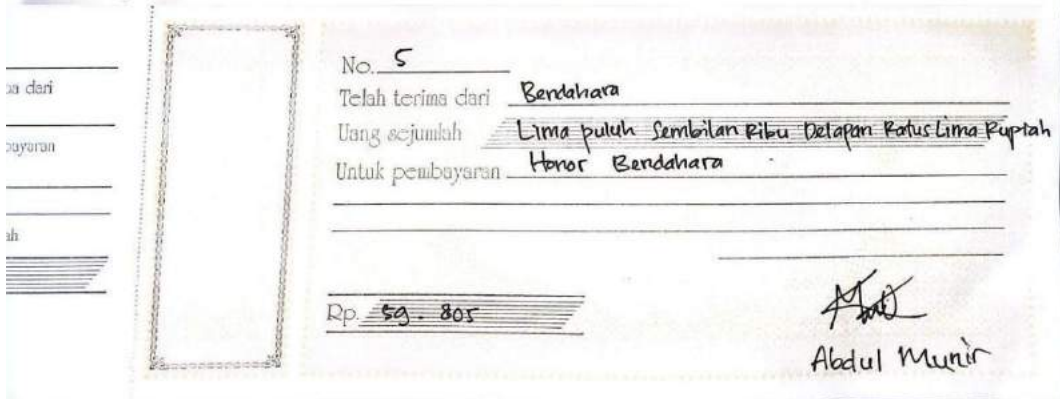 No. 5
Telah terima dari Bendahara
Uang sejumlah Lima puluh Sembilan Ribu Delapan Ratus Lima Rupiah
Untuk pembayaran Honor Bendahara
Rp. 59.805
Abdul Munir
dari
ah